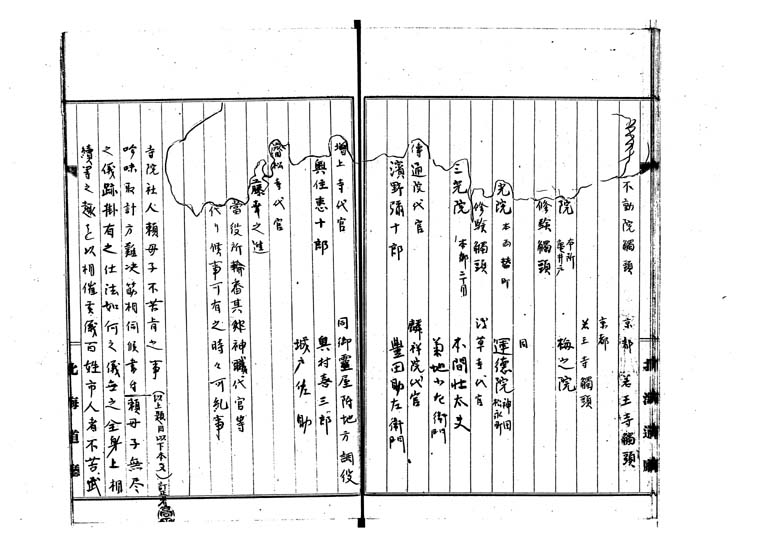 不動院觸頭　京都　若王寺觸頭
京都
若王寺觸頭
院　本所亀井戸　梅之院
修験觸頭　同
光院　本所替町　運徳院　神田松永町
修験觸頭　浅草寺代官
三光院　本郷二丁目　本間壮太夫
菊地小左衛門
傳通院代官　麟祥院代官
濱野彌十郎　豊田助左衛門
増上寺代官　同御靈屋附地方調役
奥住恵十郎　奥村喜三郎
城戸佐助
寺代官
之進
當役所輪番其餘神職代官等
代り候事可有之時々可糺事
寺院社人頼母子不苦有之事（以上題目以下本文）
吟味取計方難决筋相伺候書付頼母子無尽
之儀跡掛有之仕法如何之儀無之全身上相
續尋之趣を以相催武儀百姓市人者不苦武
北海道廳